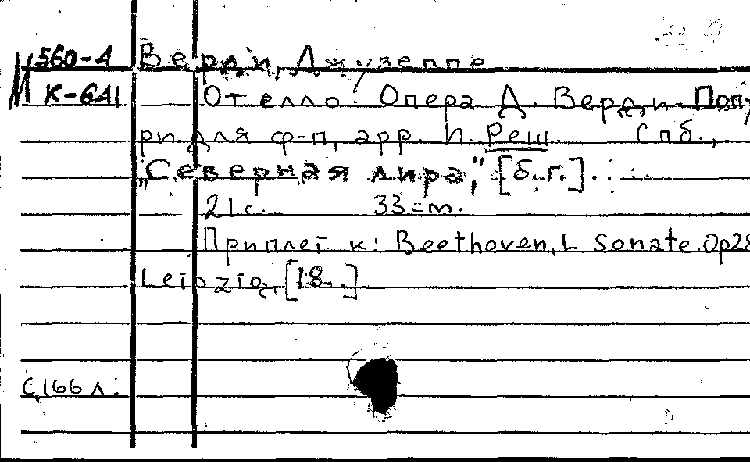 М 560-4 Верди, Джузеппе
К-641 Отелло. Опера Д. Верди. Попу
ри для ф-п, арр. И. Реш. Спб.,
"Северная лира", [б.г.].
21 с. 33 см.
Приплет к: Beethoven, L Sonate. Op28
Leipzig, [18..]
С,166 л.